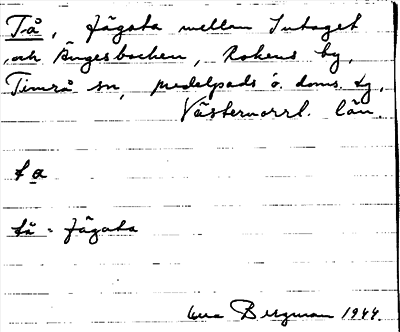 Tå, fägata mellan Intaget
och Ängesbacken, Rokens by,
Timrå sn, Medelpads ö. doms. tg,
Västernorrl. län.
ta
tå = fägata
Bergman 1944.